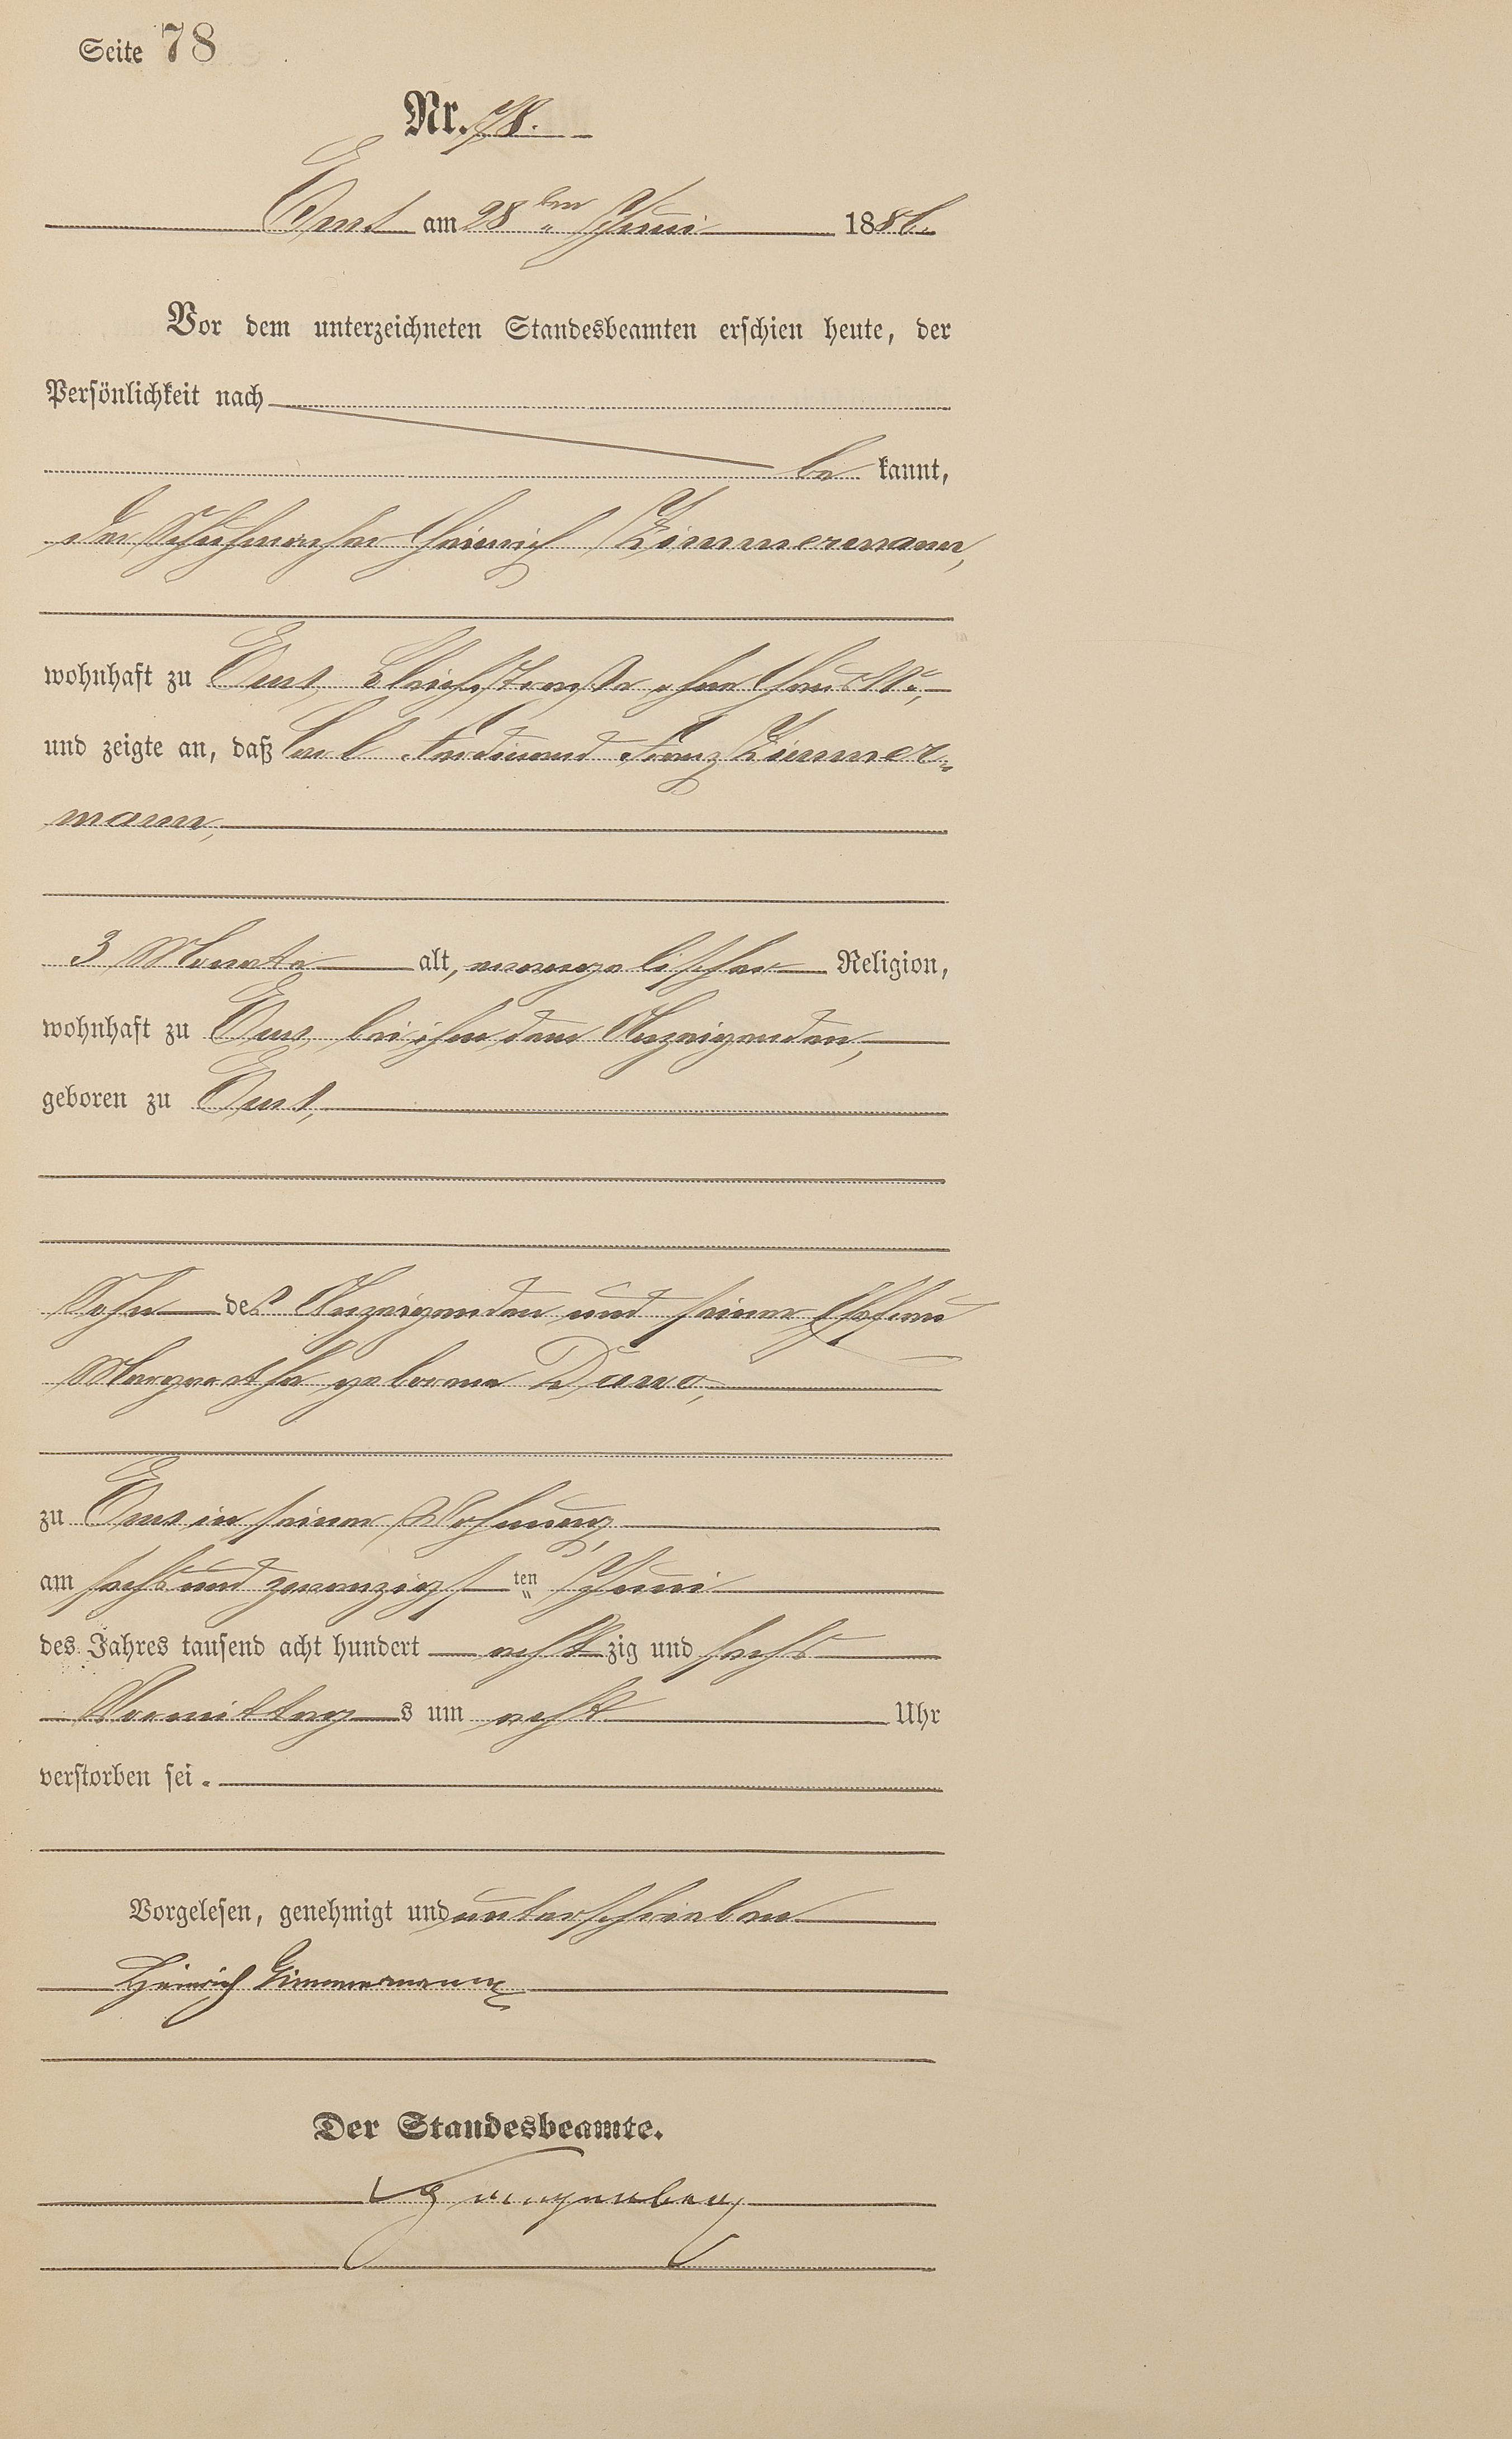 Seite 78
Nr. 78.
Ems am 28ten Juni 1886.
Vor dem unterzeichneten Standesbeamten erschien heute, der
Persönlichkeit nach
be kannt,
der Schuhmacher Heinrich Zimmermann,
wohnhaft zu Ems, Bleichstraße ohne Haus No.,
und zeigte an, daß Carl Ferdinand Franz Zimmer-
mann,
3 Monate alt, evangelischer Religion,
wohnhaft zu Ems, bei ihm dem Anzeigenden,
geboren zu Ems,
Sohn des Anzeigenden und seiner Ehefrau
Margaretha geborene
zu Ems in seiner Wohnung,
am sechs und zwanzigsten Juni
des Jahres tausend acht hundert acht zig und sechs
Vormittags um acht Uhr
verstorben sei.
Vorgelesen, genehmigt und unterschrieben
Heinrich Zimmermann
Der Standesbeamte.